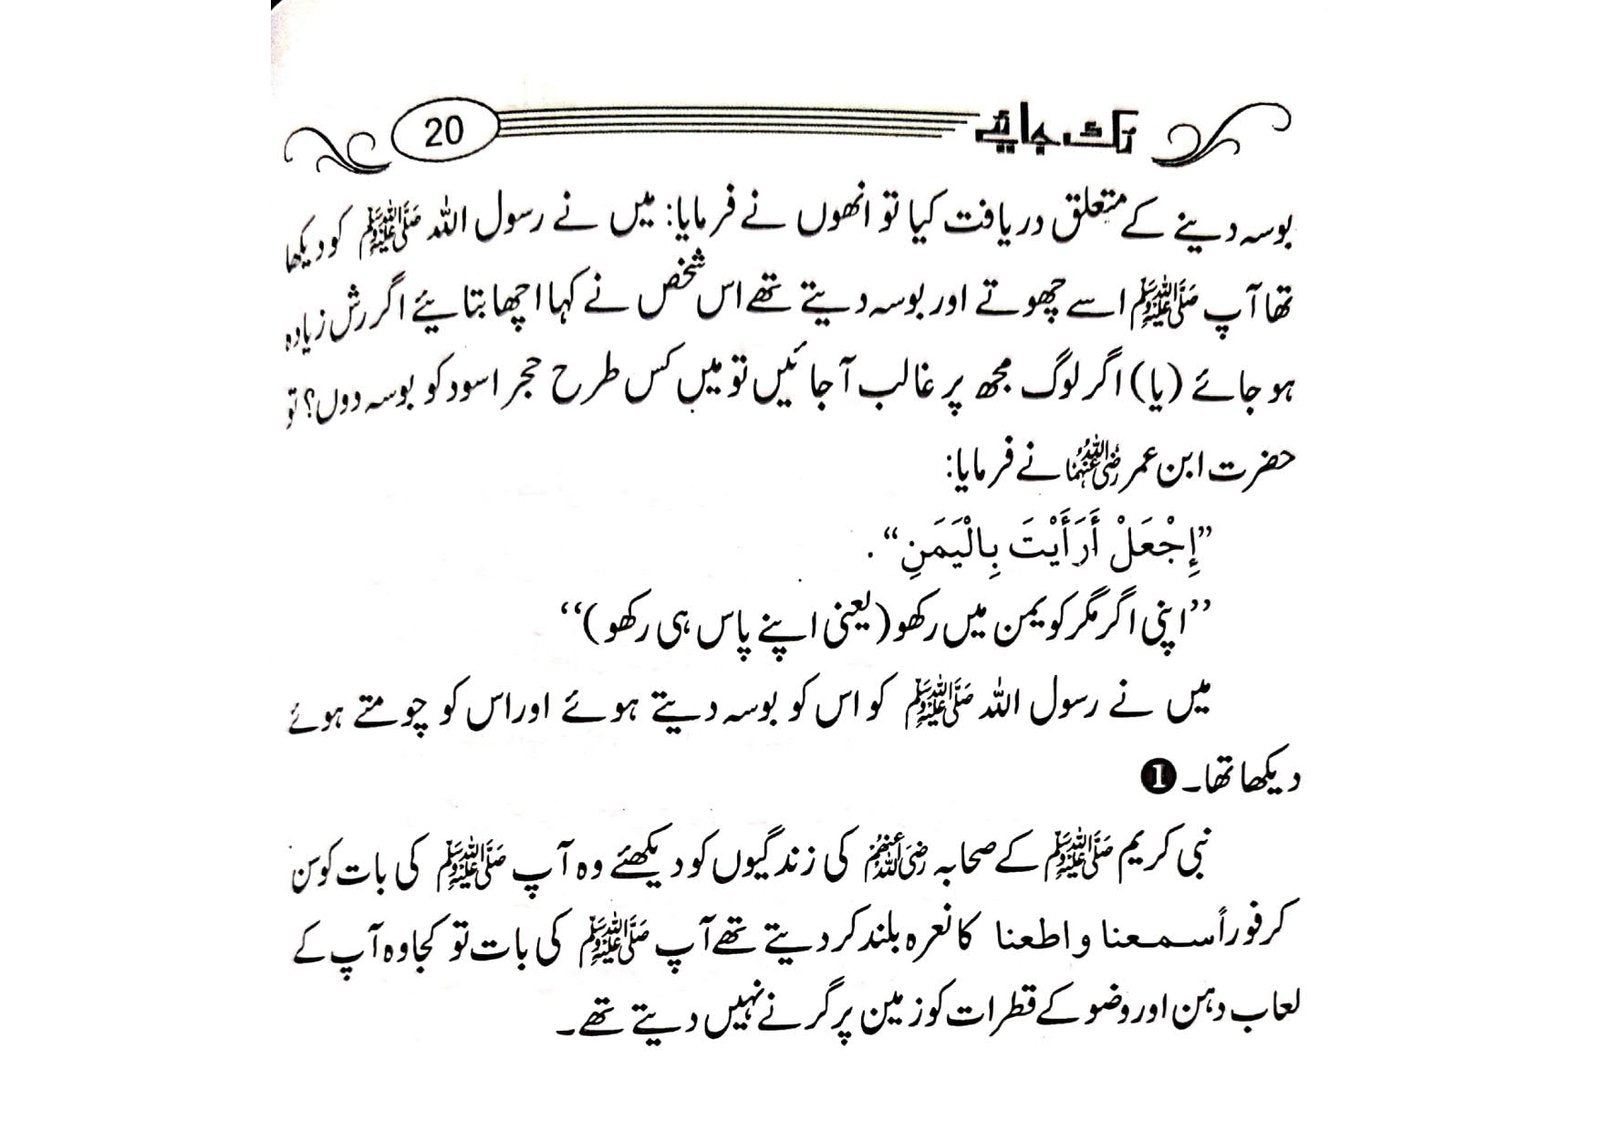 رک جایئے
20
بوسہ دینے کے متعلق دریافت کیا تو انھوں نے فرمایا: میں نے رسول اللہ ﷺ کو دیکھا
تھا آپ ﷺ اسے چھوتے اور بوسہ دیتے تھے اس شخص نے کہا اچھا بتائیے اگر رش زیادہ
ہو جائے (یا) اگر لوگ مجھ پر غالب آجائیں تو میں کس طرح حجر اسود کو بوسہ دوں؟ تو
حضرت ابن عمر رضی اللہ عنہما نے فرمایا:
”إِجْعَلْ أَرَأَيْتَ بِالْيَمَنِ“ .
’’اپنی اگر مگر کو یمن میں رکھو (یعنی اپنے پاس ہی رکھو)‘‘
میں نے رسول اللہ ﷺ کو اس کو بوسہ دیتے ہوئے اور اس کو چومتے ہوئے
دیکھا تھا۔ ❶
نبی کریم ﷺ کے صحابہ رضی اللہ عنہم کی زندگیوں کو دیکھئے وہ آپ ﷺ کی بات کو سن
کر فوراً سمعنا واطعنا کا نعرہ بلند کر دیتے تھے آپ ﷺ کی بات تو کجا وہ آپ کے
لعاب دہن اور وضو کے قطرات کو زمین پر گرنے نہیں دیتے تھے۔